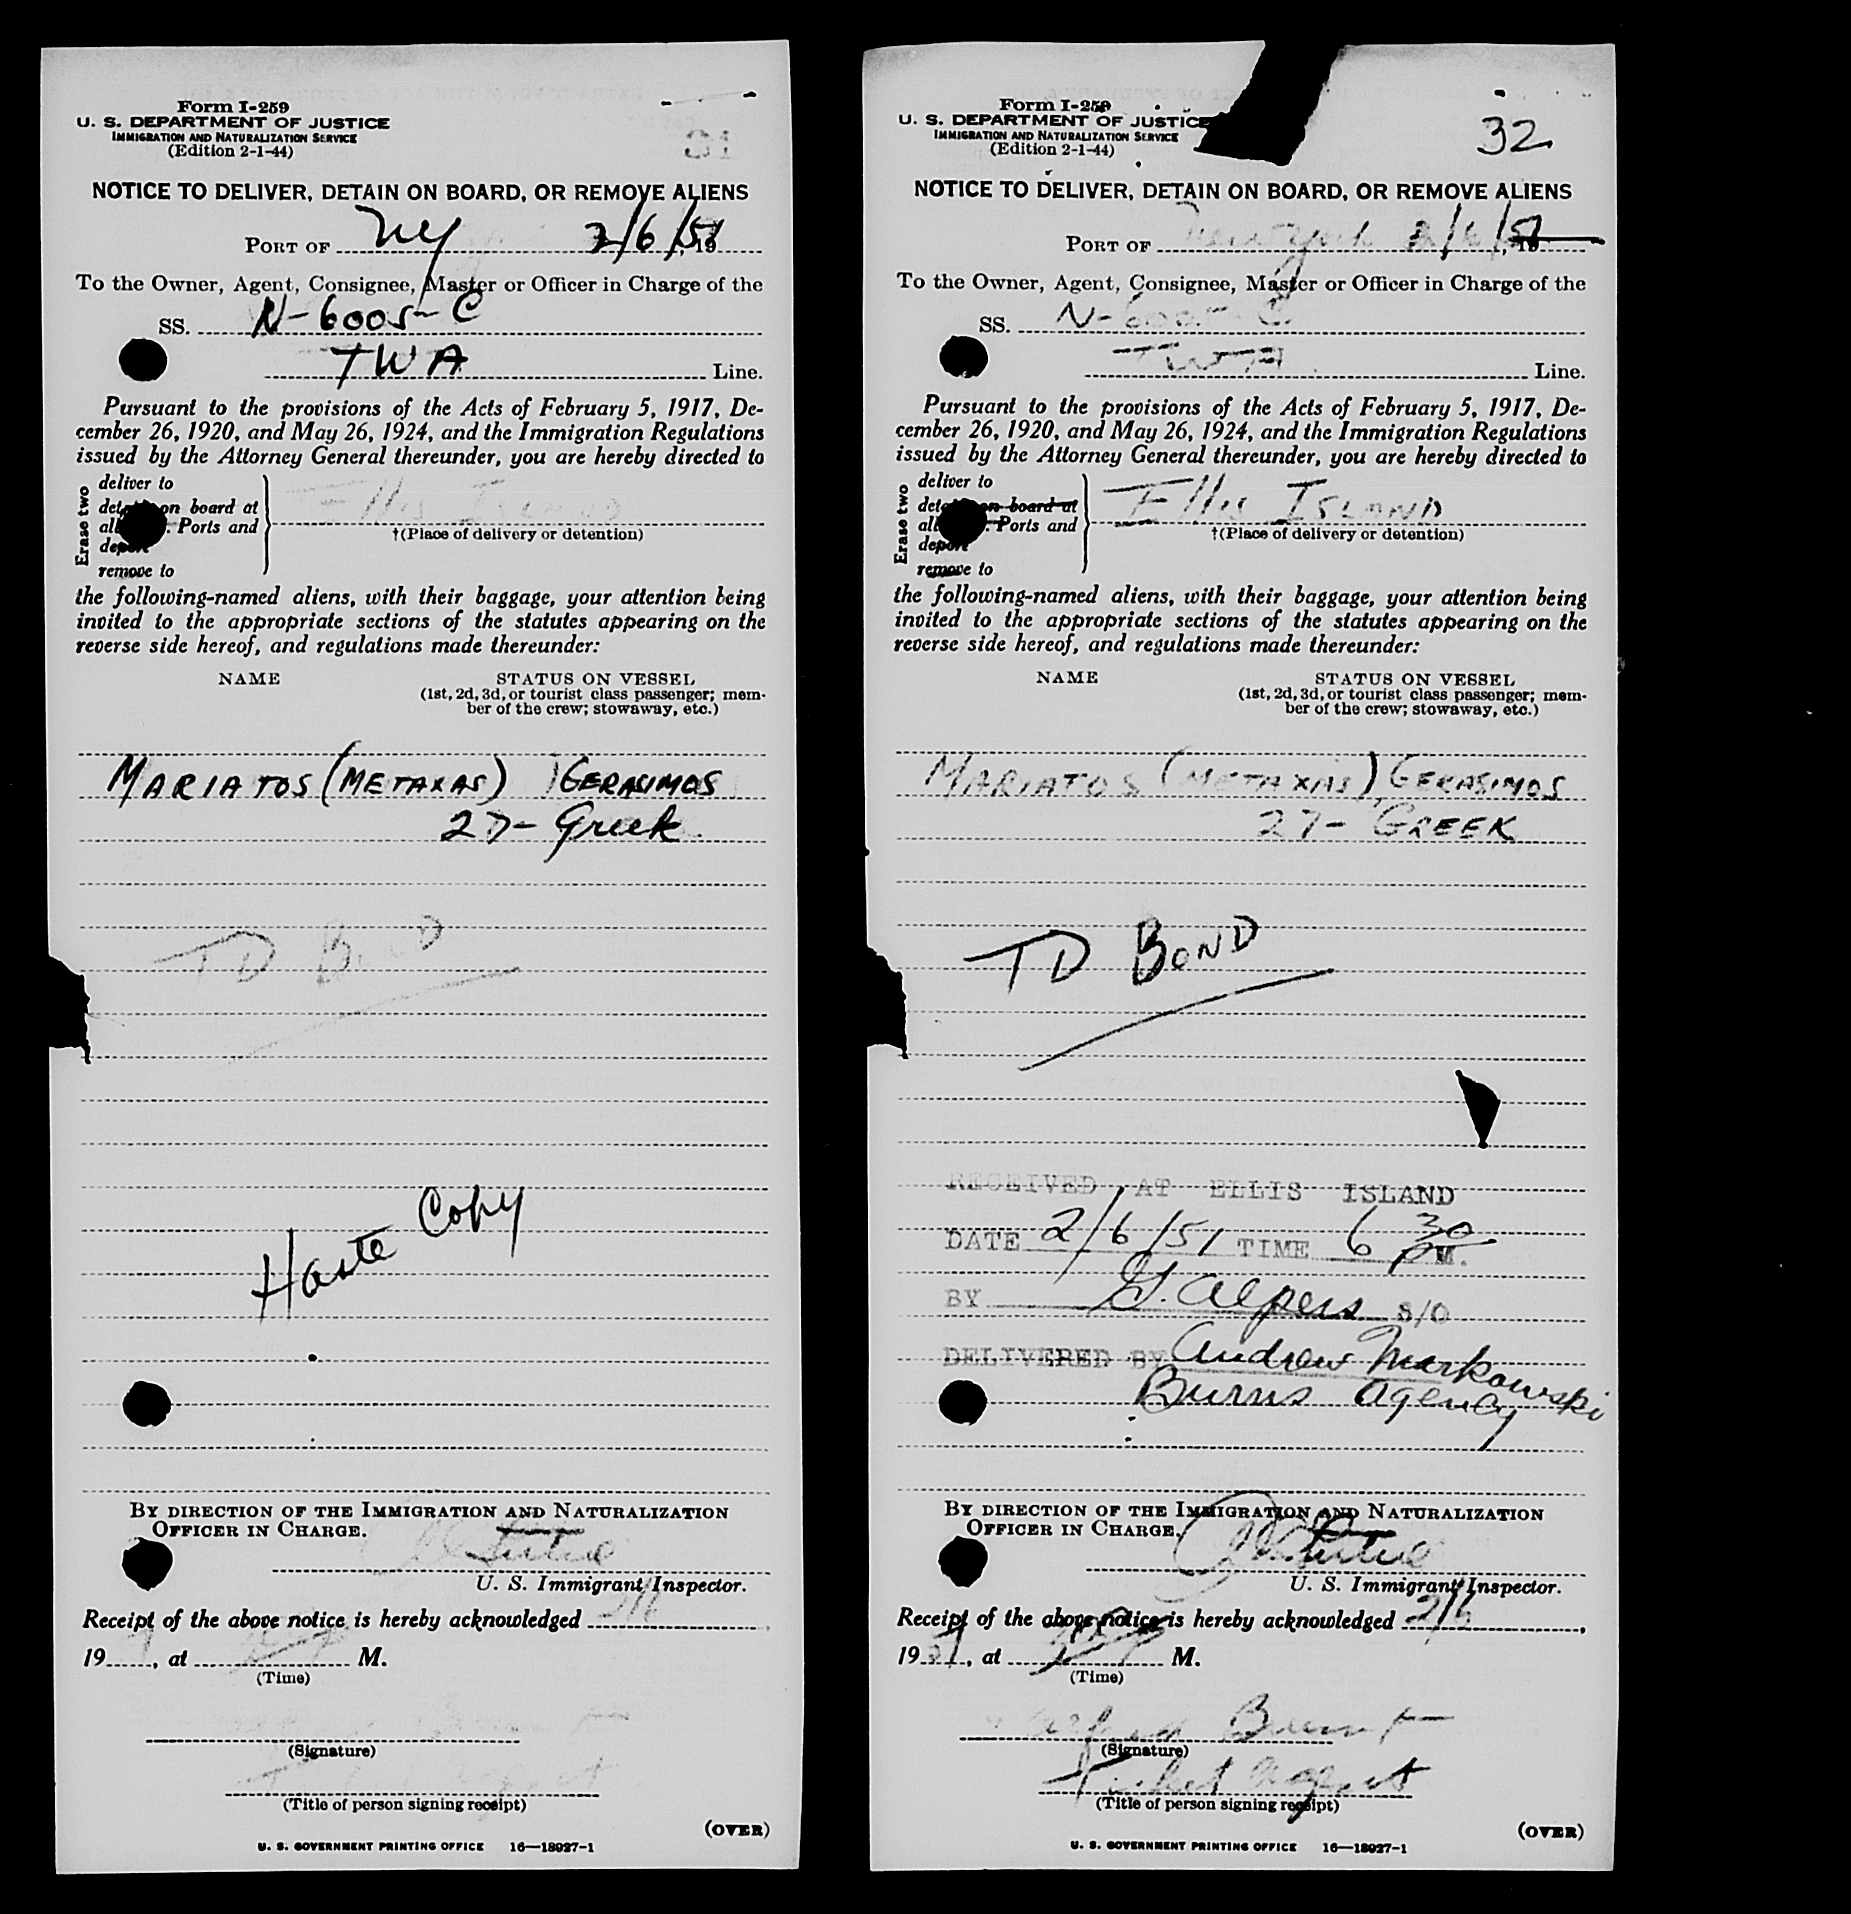 Form I-259
U. S. DEPARTMENT OF JUSTICE
IMMIGRATION AND NATURALIZATION SERVICE
(Edition 2-1-44)
31
NOTICE TO DELIVER, DETAIN ON BOARD, OR REMOVE ALIENS
PORT OF NY 2/6/51, 19
To the Owner, Agent, Consignee, Master or Officer in Charge of the
SS. N-6005-C
TWA Line.
Pursuant to the provisions of the Acts of February 5, 1917, De-
cember 26, 1920, and May 26, 1924, and the Immigration Regulations
issued by the Attorney General thereunder, you are hereby directed to
Erase two
deliver to
on board at
all Ports and
deport
remove to
Ellis Island
†(Place of delivery or detention)
the following-named aliens, with their baggage, your attention being
invited to the appropriate sections of the statutes appearing on the
reverse side hereof, and regulations made thereunder:
NAME STATUS ON VESSEL
(1st, 2d, 3d, or tourist class passenger; mem-
ber of the crew; stowaway, etc.)
MARIATOS (METAXAS) GERASIMOS
27- Greek
TD BOND
Haste Copy
BY DIRECTION OF THE IMMIGRATION AND NATURALIZATION
OFFICER IN CHARGE.
U. S. Immigrant Inspector.
Receipt of the above notice is hereby acknowledged 2/6,
19, at M.
(Time)
(Signature)
Ticket Agent
(Title of person signing receipt)
(OVER)
U. S. GOVERNMENT PRINTING OFFICE 16—18927-1
Form I-259
U. S. DEPARTMENT OF JUSTICE
IMMIGRATION AND NATURALIZATION SERVICE
(Edition 2-1-44)
32
NOTICE TO DELIVER, DETAIN ON BOARD, OR REMOVE ALIENS
PORT OF New York 2/6/51, 19
To the Owner, Agent, Consignee, Master or Officer in Charge of the
SS. N-6005-C
TWA Line.
Pursuant to the provisions of the Acts of February 5, 1917, De-
cember 26, 1920, and May 26, 1924, and the Immigration Regulations
issued by the Attorney General thereunder, you are hereby directed to
Erase two
deliver to
on board at
all Ports and
deport
remove to
Ellis Island
†(Place of delivery or detention)
the following-named aliens, with their baggage, your attention being
invited to the appropriate sections of the statutes appearing on the
reverse side hereof, and regulations made thereunder:
NAME STATUS ON VESSEL
(1st, 2d, 3d, or tourist class passenger; mem-
ber of the crew; stowaway, etc.)
MARIATOS (METAXAS) GERASIMOS
27- GREEK
TD BOND
RECEIVED AT ELLIS ISLAND
DATE 2/6/51 TIME 6 30 PM.
BY G. Alpers S/O
DELIVERED BY Andrew Markowski
Burns Agency
BY DIRECTION OF THE IMMIGRATION AND NATURALIZATION
OFFICER IN CHARGE.
U. S. Immigrant Inspector.
Receipt of the above notice is hereby acknowledged 2/6,
1951, at M.
(Time)
(Signature)
Ticket Agent
(Title of person signing receipt)
(OVER)
U. S. GOVERNMENT PRINTING OFFICE 16—18927-1